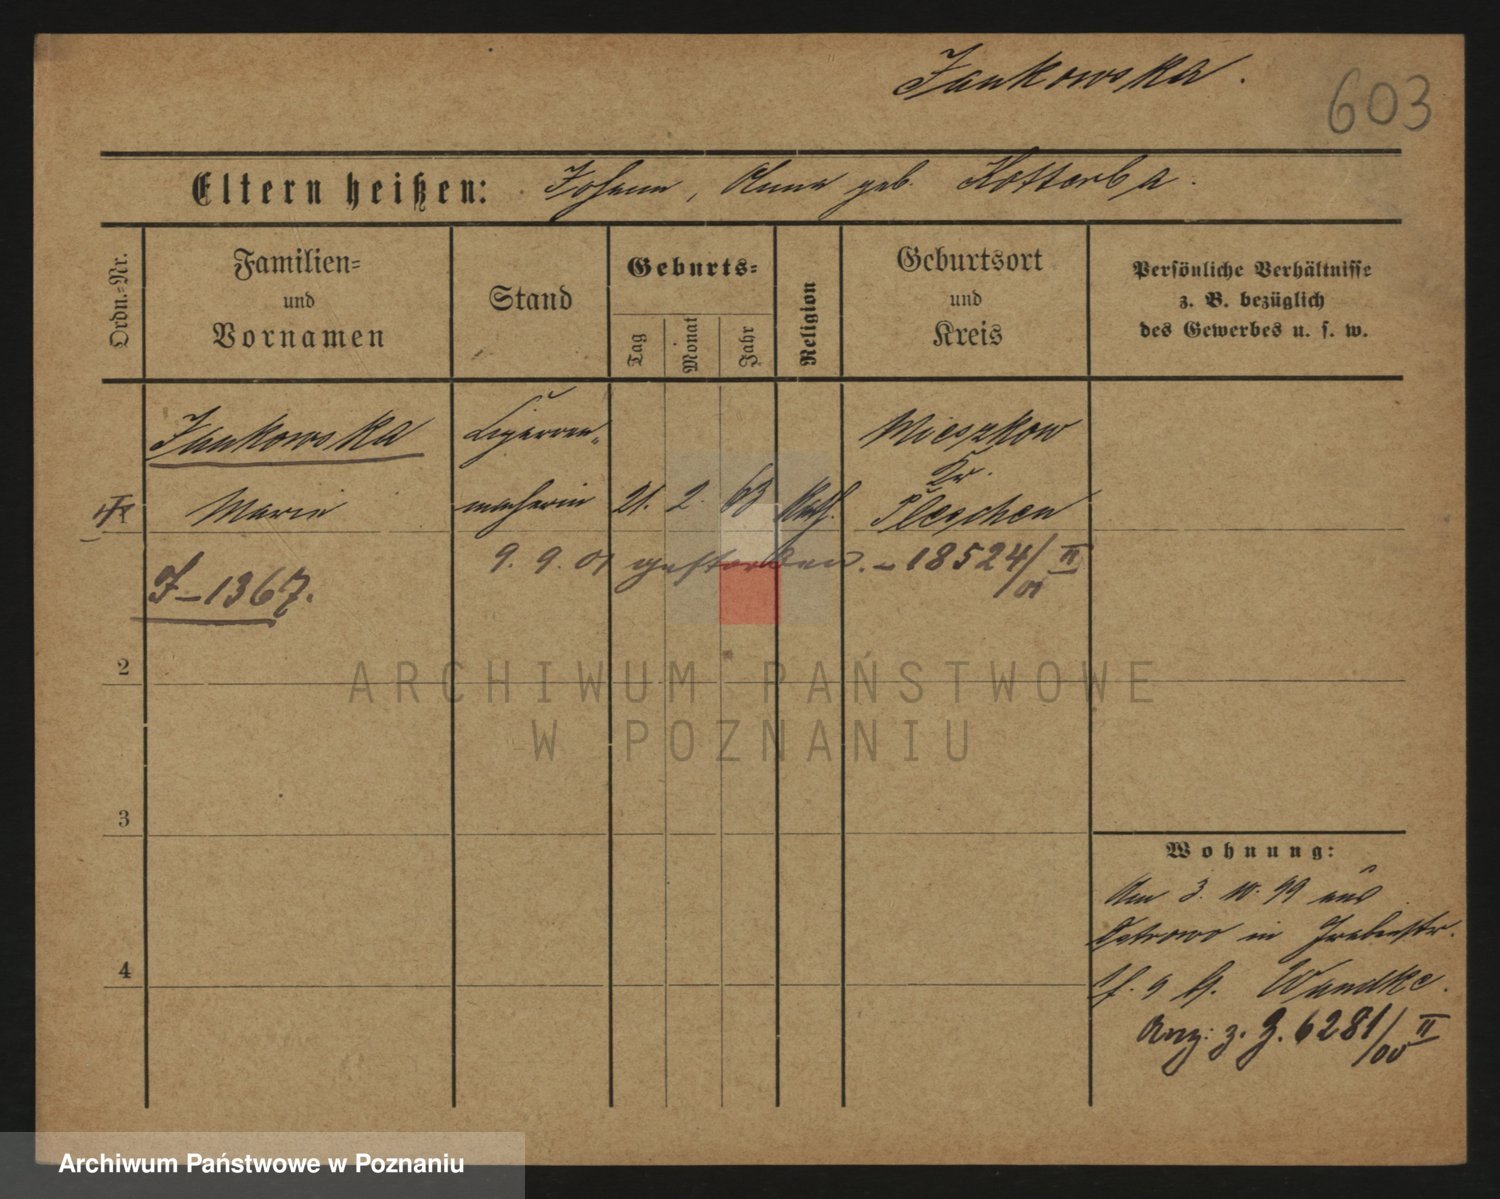 Jankowska.
603
Eltern heißen: Johann, Anna geb. Kotterba.
Ordn.-Nr.
Familien-
und
Vornamen
Stand
Geburts-
Tag
Monat
Jahr
Religion
Geburtsort
und
Kreis
Persönliche Verhältnisse
z. B. bezüglich
des Gewerbes u. s. w.
Jankowska
Cigarren-
Mieszkow
Kr.
Marie
macherin
21. 2. 63 Kath.
Pleschen
9. 9. 01 gestorben. – 18524/01 II
J–1367.
2
ARCHIWUM PAŃSTWOWE
W POZNANIU
3
Wohnung:
Am 3. 10. 99 aus
Ostrowo in Grabenstr.
9 b. Wandke.
4
Anz: z. J. 6281/00 II
Archiwum Państwowe w Poznaniu